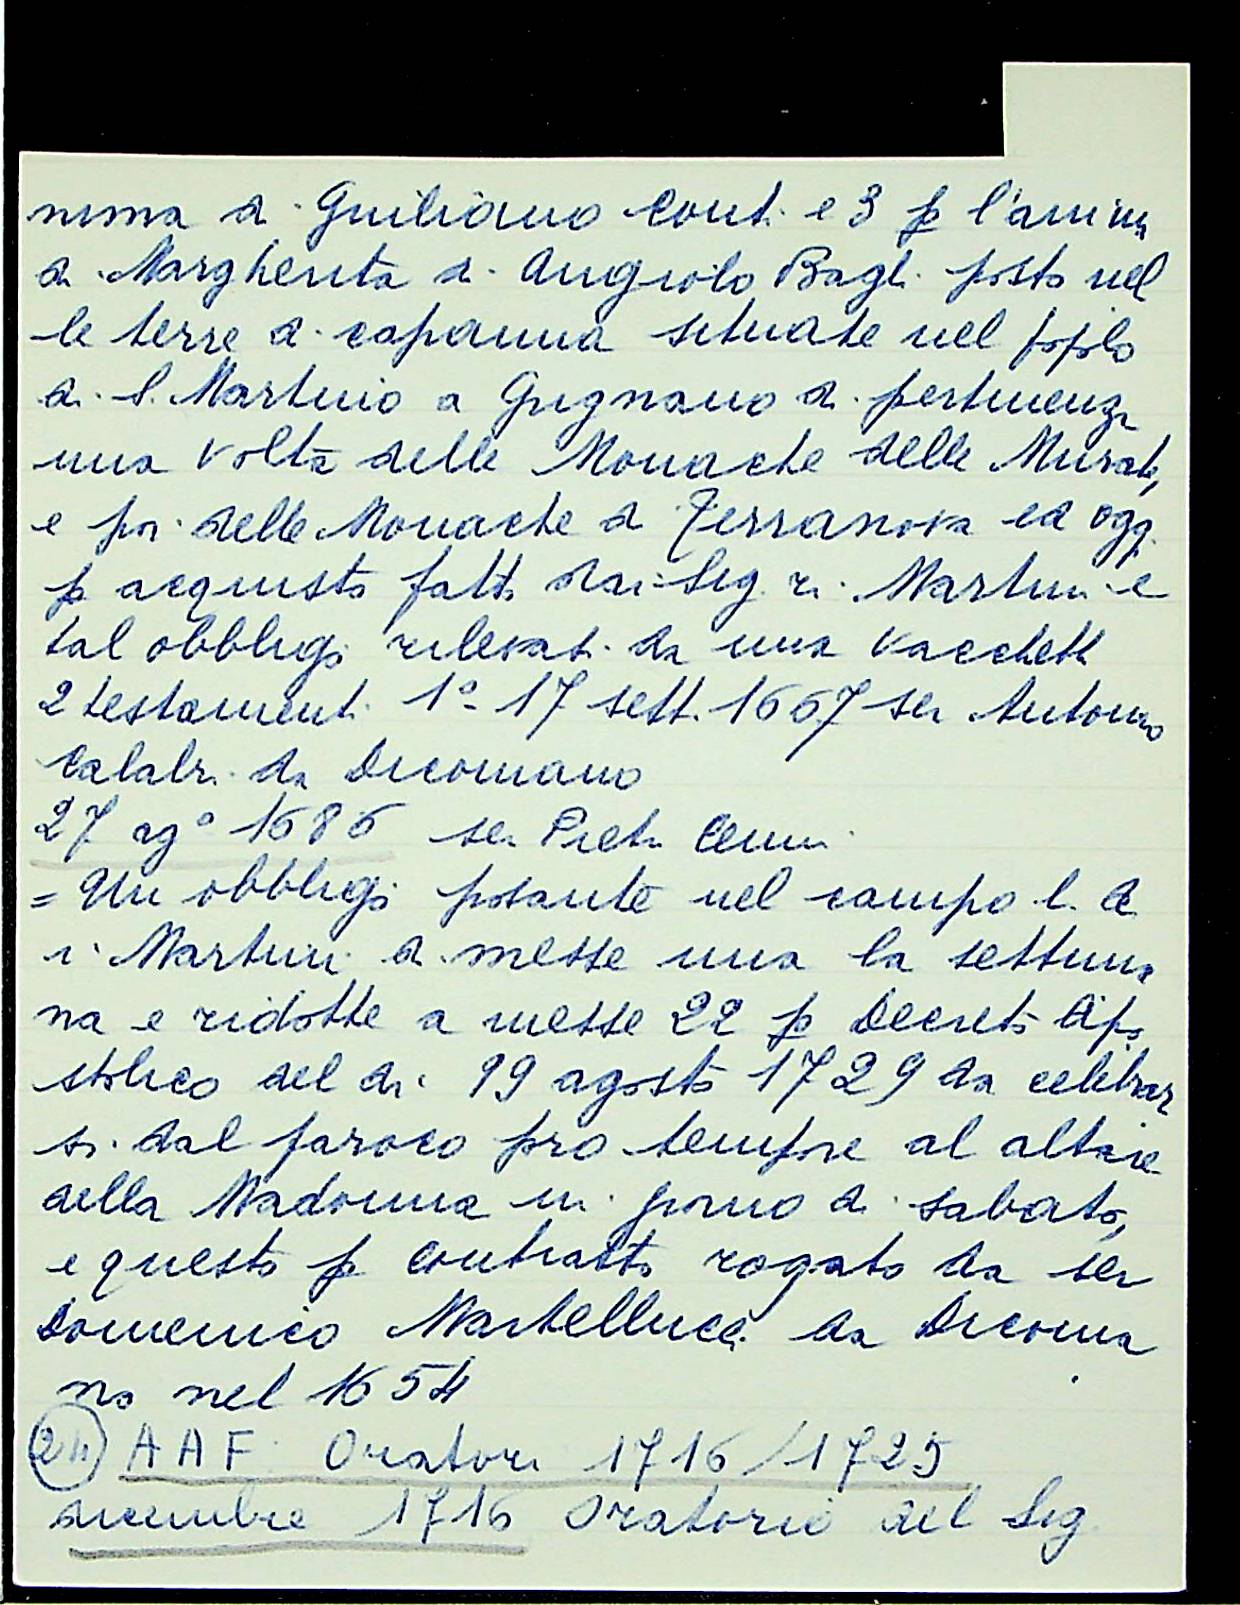 nima di Giuliano Conti e 3 p l'anima
di Margherita di Angiolo Bagli posto nel
le terre di capanna situate nel popolo
di S. Martino a Gugnano di pertinenza
una volta delle Monache delle Murate,
e poi delle Monache di Terranova ed oggi
p acquisto fatto dai Sig.ri Martini e
tal obbligo rilevasi da una vacchetta
2 testamenti 1° 17 sett. 1667 ser Antonio
Calabri da Dicomano
27 ag° 1686 ser Pietro Cenni
= Un obbligo posante nel campo l. d
i Martini di messe una la settima
na e ridotte a messe 22 p Decreto Apo
stolico del di 19 agosto 1729 da celebrar
si dal paroco pro tempore al altare
della Madonna in giorno di sabato,
e questo p contratto rogato da ser
Domenico Martellucci da Dicoma
no nel 1654
24 AAF Oratori 1716/1725
dicembre 1716 Oratorio del Sig